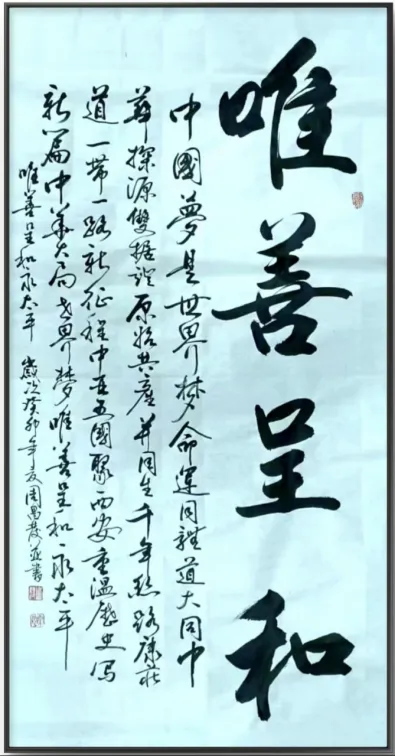 唯善呈和
中國夢是世界梦命運同體道大同中
華探源雙据證原始共産并同生千年丝路康莊
道一带一路新征程中亚五國聚西安重温歷史写
新篇中華大局世界梦唯善呈和永太平
唯善呈和永太平 歲次癸卯年夏周昌发并書